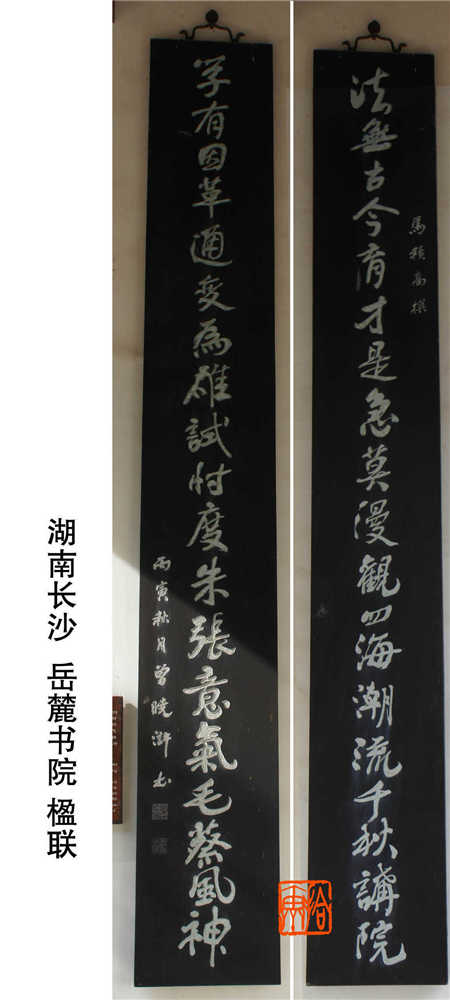 法無古今育才是急莫漫觀四海潮流千秋講院
馬積高撰
學有因革通變爲雄試忖度朱張意氣毛蔡風神
丙寅秋月曾曉滸書
湖南长沙 岳麓书院 楹联